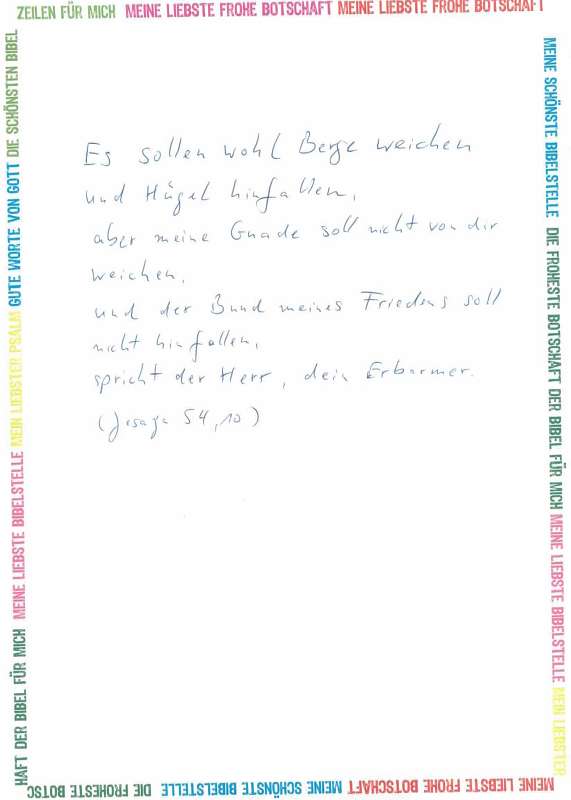 ZEILEN FÜR MICH MEINE LIEBSTE FROHE BOTSCHAFT MEINE LIEBSTE FROHE BOTSCHAFT
MEINE SCHÖNSTE BIBELSTELLE DIE FROHESTE BOTSCHAFT DER BIBEL FÜR MICH MEINE LIEBSTE BIBELSTELLE MEIN LIEBSTER
Es sollen wohl Berge weichen
und Hügel hinfallen,
aber meine Gnade soll nicht von dir
weichen,
und der Bund meines Friedens soll
nicht hinfallen,
spricht der Herr, dein Erbarmer.
(Jesaja 54,10)
MEINE LIEBSTE FROHE BOTSCHAFT MEINE SCHÖNSTE BIBELSTELLE DIE FROHESTE BOTSC
HAFT DER BIBEL FÜR MICH MEINE LIEBSTE BIBELSTELLE MEIN LIEBSTER PSALM GUTE WORTE VON GOTT DIE SCHÖNSTEN BIBEL